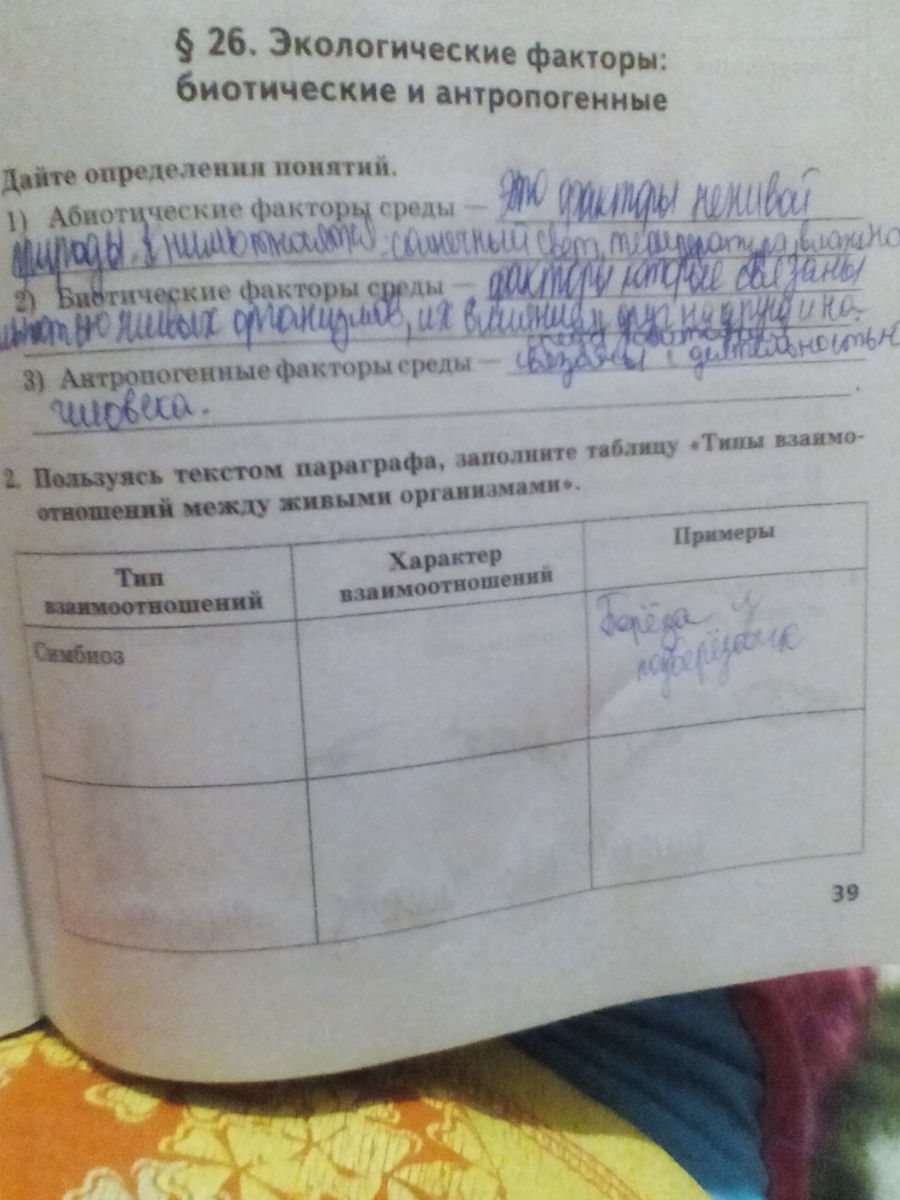 § 26. Экологические факторы:
биотические и антропогенные
Дайте определения понятий.
1) Абиотические факторы среды — это факторы неживой
природы. К ним относятся: солнечный свет, температура, влажно
2) Биотические факторы среды — факторы которые связаны
живых организмов, их влияние друг на друга и на
среду
3) Антропогенные факторы среды — связаны с деятельностью
человека.
2. Пользуясь текстом параграфа, заполните таблицу «Типы взаимо-
отношений между живыми организмами».
Тип
взаимоотношений
Характер
взаимоотношений
Примеры
Симбиоз
Берёза и
подберёзовик
39